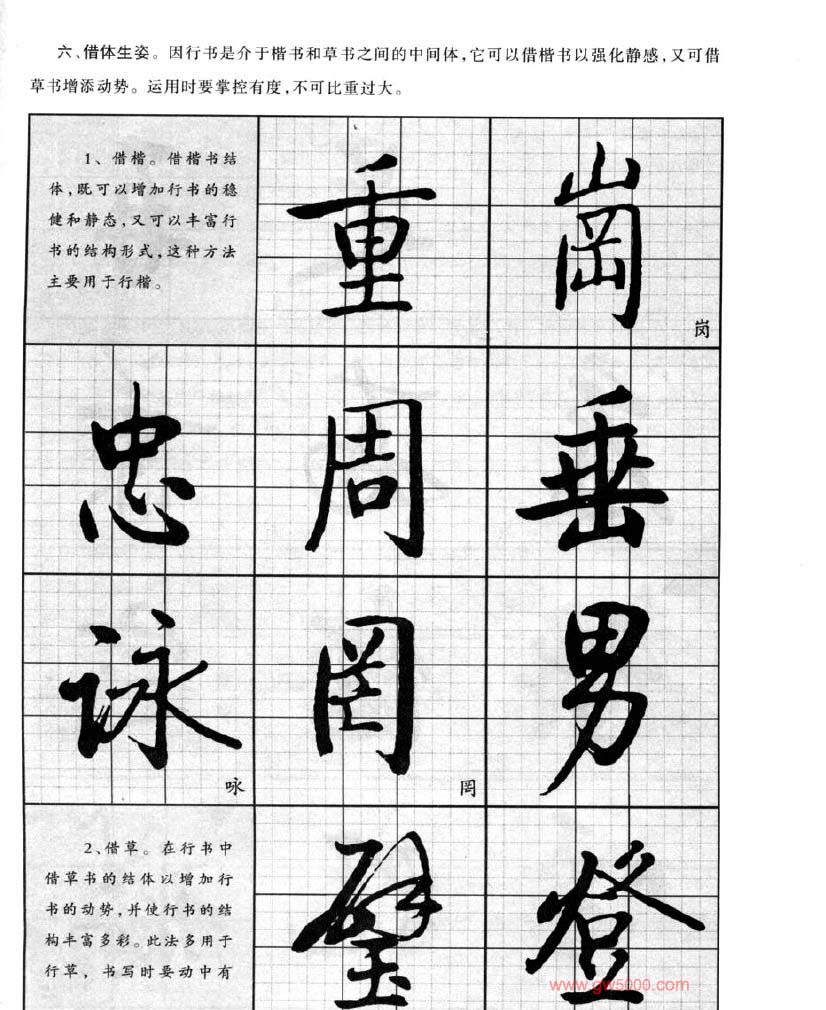 六、借体生姿。因行书是介于楷书和草书之间的中间体,它可以借楷书以强化静感,又可借
草书增添动势。运用时要掌控有度,不可比重过大。
1、借楷。借楷书结
体,既可以增加行书的稳
健和静态,又可以丰富行
书的结构形式,这种方法
主要用于行楷。
重
崗
岗
忠
周
垂
詠
咏
罔
罔
男
2、借草。在行书中
借草书的结体以增加行
书的动势,并使行书的结
构丰富多彩。此法多用于
行草,书写时要动中有
璧
登
www.gw5000.com